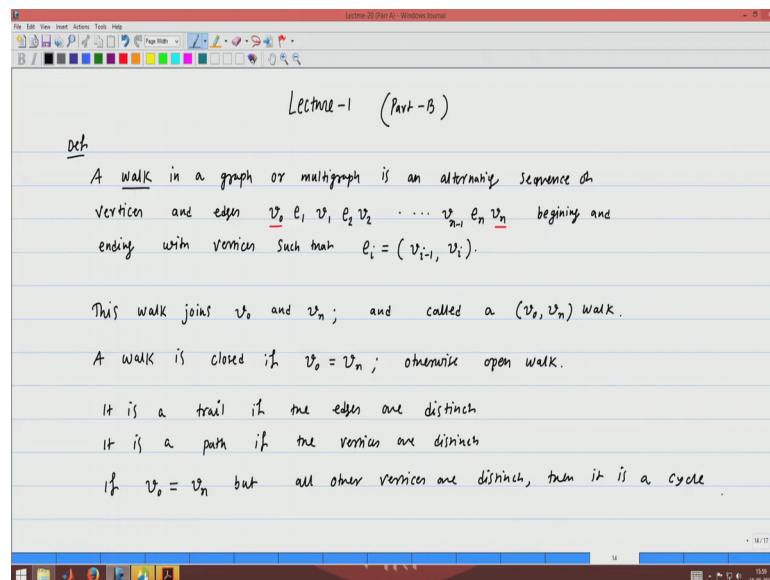 Lecture-20 (Part A) - Windows Journal
File Edit View Insert Actions Tools Help
Page Width
B I
Lecture-1 (Part-B)
Def
A walk in a graph or multigraph is an alternating sequence of
vertices and edges v₀ e₁ v₁ e₂ v₂ ..... vₙ₋₁ eₙ vₙ begining and
ending with vertices such that eᵢ = (vᵢ₋₁, vᵢ).
This walk joins v₀ and vₙ ; and called a (v₀, vₙ) walk.
A walk is closed if v₀ = vₙ ; otherwise open walk.
It is a trail if the edges are distinct
It is a path if the vertices are distinct
If v₀ = vₙ but all other vertices are distinct, then it is a cycle.
14 / 17
14
15:59